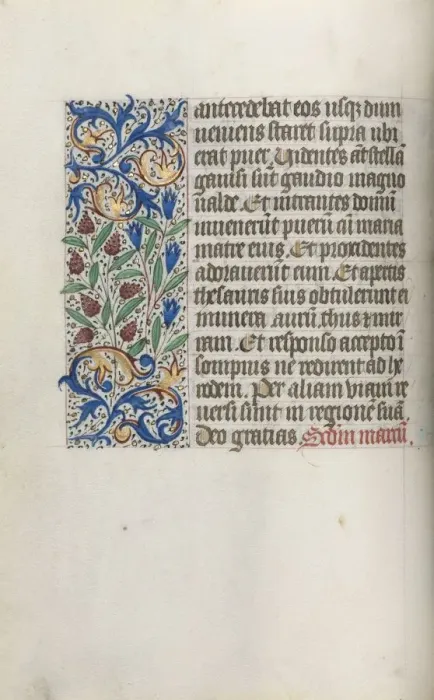 antecedebat eos usqȝ dum
veniens staret supra ubi
erat puer. Videntes aūt stellā
gauisi sūt gaudio magno
ualde. Et intrantes domū
inuenerūt puerū cū maria
matre eius. Et procidentes
adorauerūt eum. Et apertis
thesauris suis obtulerunt ei
munera. aurū. thus & mir
ram. Et responso accepto ī
sompnis ne redirent ad he
rodem. Per aliam viam re
uersi sunt in regionē suā.
Deo gratias. Scdm marcū.